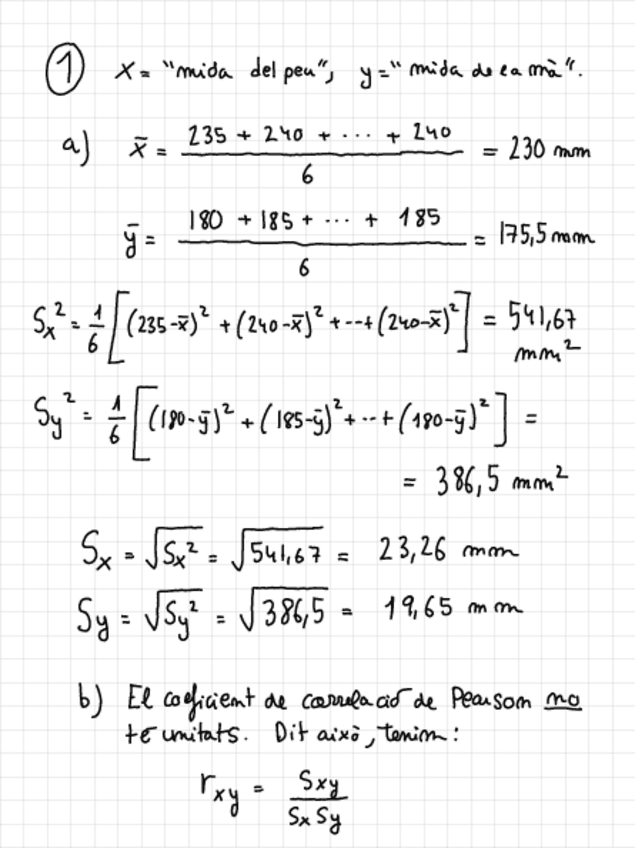 1 x = "mida del peu", y = "mida de la mà".
a) x̄ = (235 + 240 + ··· + 240) / 6 = 230 mm
ȳ = (180 + 185 + ··· + 185) / 6 = 175,5 mm
Sx² = 1/6 [(235-x̄)² + (240-x̄)² + ··· + (240-x̄)²] = 541,67
mm²
Sy² = 1/6 [(180-ȳ)² + (185-ȳ)² + ·· + (180-ȳ)²] =
= 386,5 mm²
Sx = √Sx² = √541,67 = 23,26 mm
Sy = √Sy² = √386,5 = 19,65 mm
b) El coeficient de correlació de Pearson no
té unitats. Dit això, tenim:
rxy = Sxy / Sx Sy